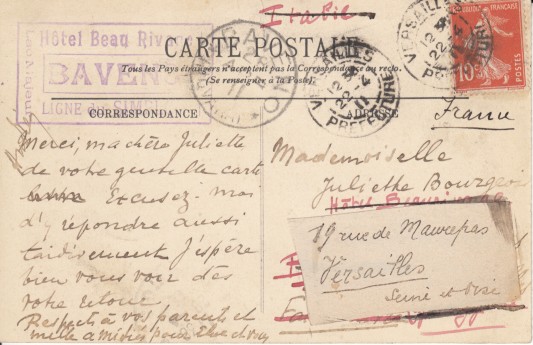 Italie
Hôtel Beau Rivage
BAVENO
LIGNE du SIMPLON
CARTE POSTALE
Tous les Pays étrangers n'acceptent pas la Correspondance au recto.
(Se renseigner à la Poste).
CORRESPONDANCE
ADRESSE
VERSAILLES
PRÉFECTURE
VERSAILLES
PRÉFECTURE
10
POSTES
France
Merci, ma chère Juliette
de votre gentille carte
Excusez-moi
d'y répondre aussi
tardivement J'espère
bien vous voir dès
votre retour
Respects à vos parents et
mille amitiés pour
Mademoiselle
Juliette Bourgeois
Hôtel Beau rivage
19 rue de Maurepas
Versailles
Seine et Oise